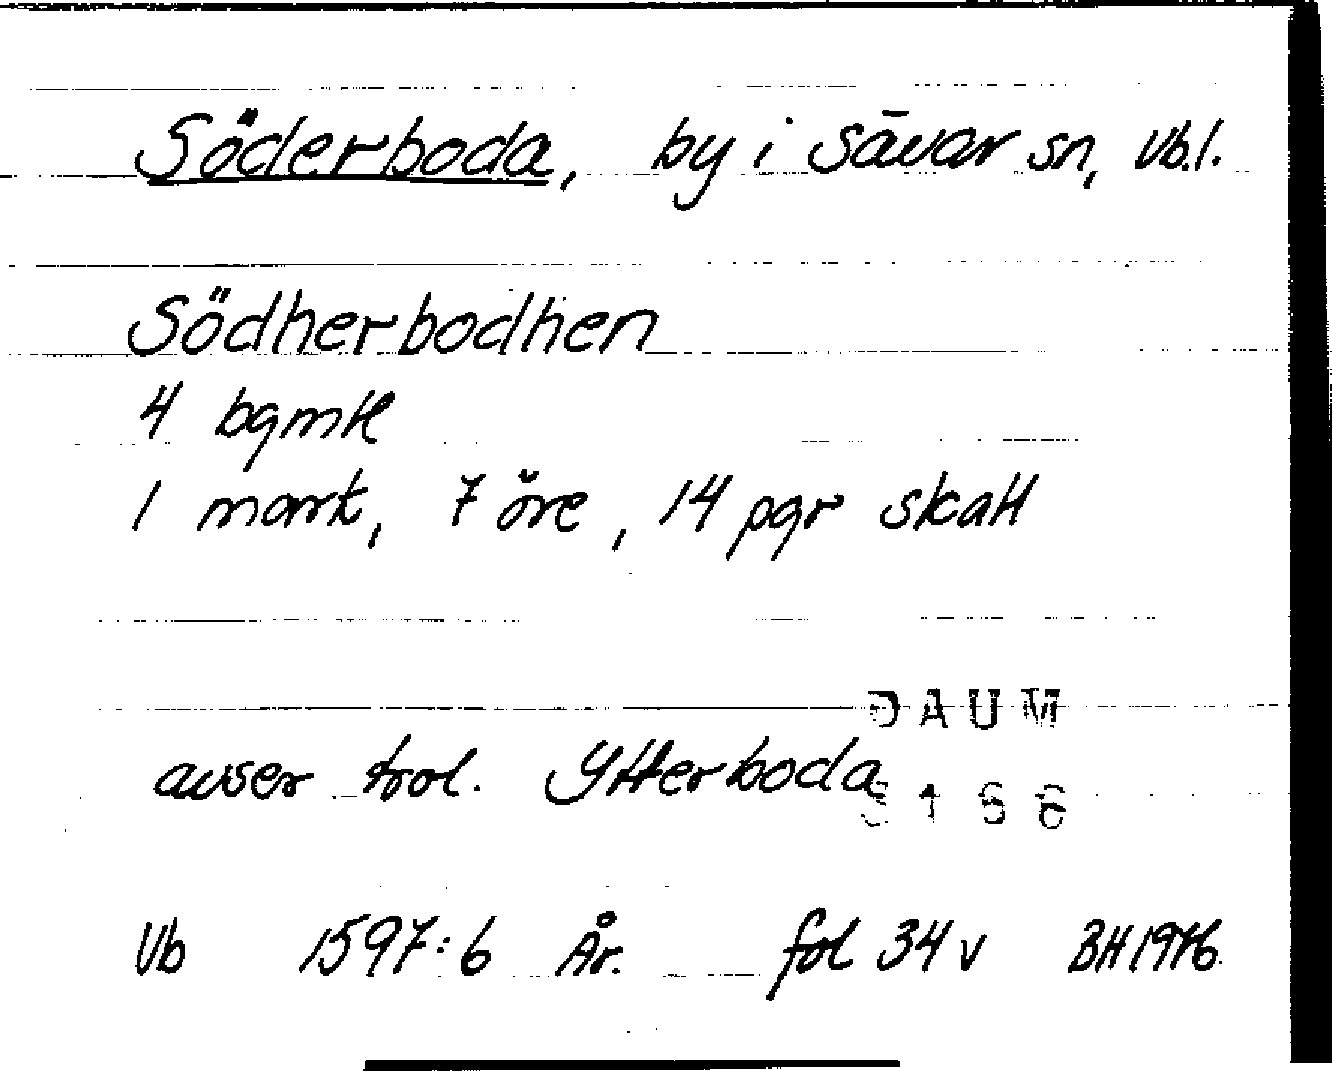 Söderboda, by i Sävar sn, Vb.l.
Södherbodhen
4 bgmtl
1 mark, 7 öre, 14 pgr skatt
DAUM
avser trol. Ytterboda
3166
Vb 1597:6 År. fol 34 v BH 1976